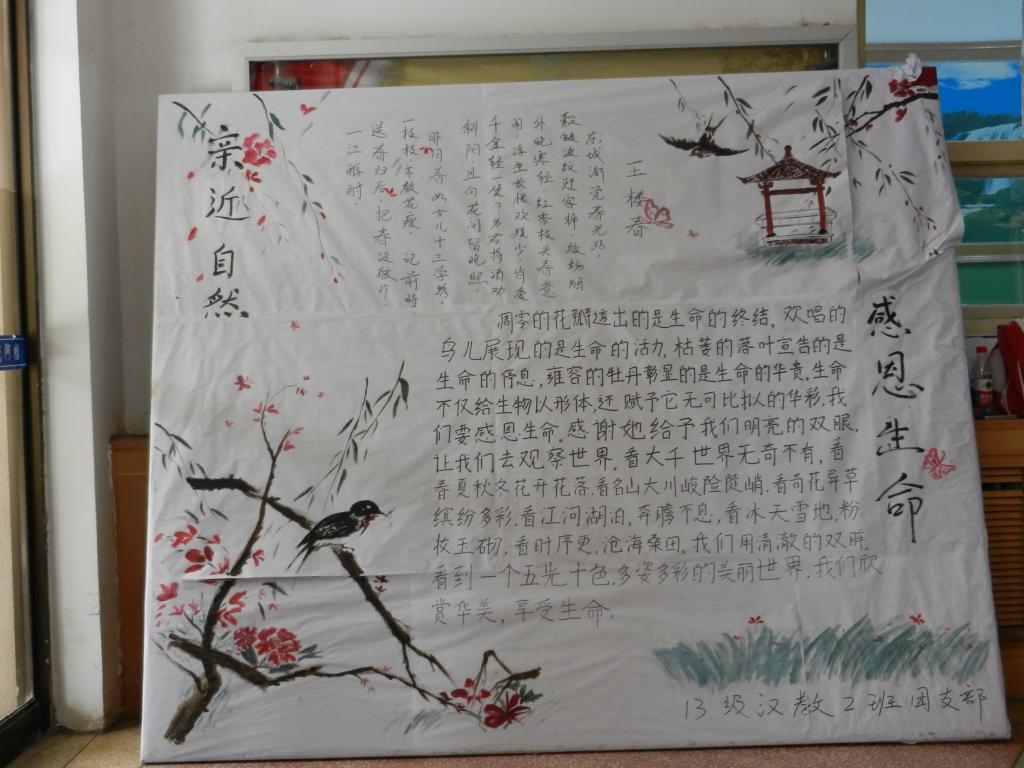 亲近自然
玉楼春
东城渐觉春光好.
縠皱波纹迎客棹.绿杨烟
外晓寒轻.红杏枝头春意
闹.浮生长恨欢娱少.肯爱
千金轻一笑?为君持酒劝
斜阳.且向花间留晚照.
那日春如女儿十三学绣.
一枝枝.不教花瘦.记前时
送春归后.把春波酿作.
一江醇酎.
凋零的花瓣透出的是生命的终结,欢唱的
鸟儿展现的是生命的活力,枯萎的落叶宣告的是
生命的停息,雍容的牡丹彰显的是生命的华贵.生命
不仅给生物以形体,还赋予它无可比拟的华彩,我
们要感恩生命.感谢她给予我们明亮的双眼,
让我们去观察世界.看大千世界无奇不有,看
春夏秋冬花开花落.看名山大川峻险陡峭.看奇花异草
缤纷多彩.看江河湖泊,奔腾不息,看冰天雪地,粉
妆玉砌,看时序更,沧海桑田.我们用清澈的双眸.
看到一个五光十色.多姿多彩的美丽世界,我们欣
赏华美,享受生命。
感恩生命
13级汉教2班团支部